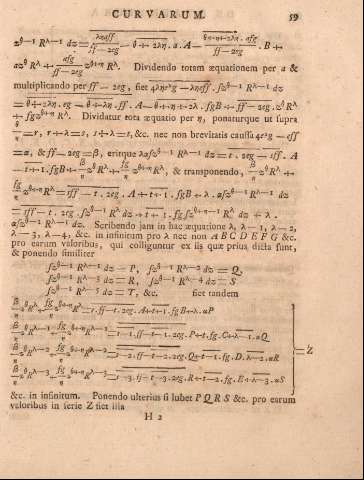 CURVARUM. 59
z^{θ-1} R^{λ-1} dz = ληαff/ff-2eg - θ+2λη. a. A - θ+η+2λη. afg/ff-2eg . B +
az^θ R^λ + afg/ff-2eg z^{θ+η} R^λ. Dividendo totam æquationem per a &
multiplicando per ff-2eg, fiet 4ληe²g - ληeff. ∫z^{θ-1} R^{λ-1} dz
= θ+2λη. eg - θ+λη. ff. A - θ+η+2λ . fgB + ff-2eg. z^θ R^λ
+ fgz^{θ+η} R^λ. Dividatur tota æquatio per η, ponaturque ut supra
θ/η = r, r+λ=s, s+λ=t, &c. nec non brevitatis caussa 4e²g - eff
= α, & ff-2eg = β, eritque λα∫z^{θ-1} R^{λ-1} dz = t. 2eg - sff. A
- t+1. fgB + β/η z^θ R^λ + fg/η z^{θ+η} R^λ, & transponendo, β/η z^θ R^λ +
fg/η z^{θ+η} R^λ = sff - t. 2eg. A + t+1. fgB + λ. α∫z^{θ-1} R^{λ-1} dz
= sff - t. 2eg. ∫z^{θ-1} R^λ dz + t+1. fg∫z^{θ+η-1} R^λ dz + λ.
α∫z^{θ-1} R^{λ-1} dz. Scribendo jam in hac æquatione λ, λ-1, λ-2,
λ-3, λ-4, &c. in infinitum pro λ nec non A B C D E F G &c.
pro earum valoribus, qui colliguntur ex iis quæ prius dicta sunt,
& ponendo similiter
∫z^{θ-1} R^{λ-1} dz = P, ∫z^{θ-1} R^{λ-2} dz = Q,
∫z^{θ-1} R^{λ-3} dz = R, ∫z^{θ-1} R^{λ-4} dz = S
∫z^{θ-1} R^{λ-5} dz = T, &c. fiet tandem
β/η z^θ R^λ + fg/η z^{θ+η} R^λ = s.ff-t.2eg. A+t+1. fgB+λ.αP
β/η z^θ R^{λ-1} + fg/η z^{θ+η} R^{λ-1} = s-1.ff-t-2.2eg. P+t-1.fg.C+λ-1.αQ
β/η z^θ R^{λ-2} + fg/η z^{θ+η} R^{λ-2} = s-2.ff-t-2.2eg. Q+t-1.fg.D.λ-2.αR
β/η z^θ R^{λ-3} + fg/η z^{θ+η} R^{λ-3} = s-3.ff-t-3.2eg. R+t-2.fg.E+λ-3.αS
= Z
&c. in infinitum. Ponendo ulterius si lubet P Q R S &c. pro earum
valoribus in serie Z fiet illa
H 2